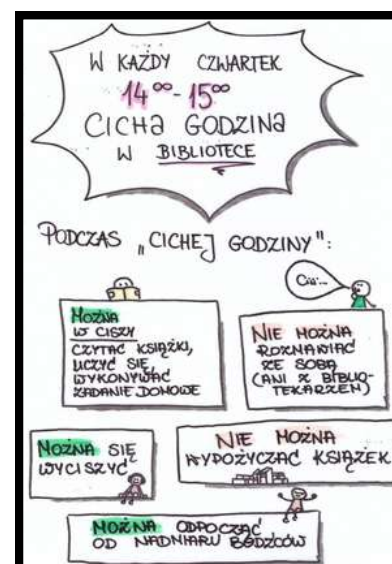 W KAŻDY CZWARTEK
14⁰⁰-15⁰⁰
CICHA GODZINA
W BIBLIOTECE
PODCZAS „CICHEJ GODZINY":
MOŻNA
W CISZY
CZYTAĆ KSIĄŻKI,
UCZYĆ SIĘ,
WYKONYWAĆ
ZADANIE DOMOWE
Ciii...
NIE MOŻNA
ROZMAWIAĆ
ZE SOBĄ
(ANI Z BIBLIO-
TEKARZEM)
MOŻNA SIĘ
WYCISZYĆ
NIE MOŻNA
WYPOŻYCZAĆ KSIĄŻEK
MOŻNA ODPOCZĄĆ
OD NADMIARU BODŹCÓW